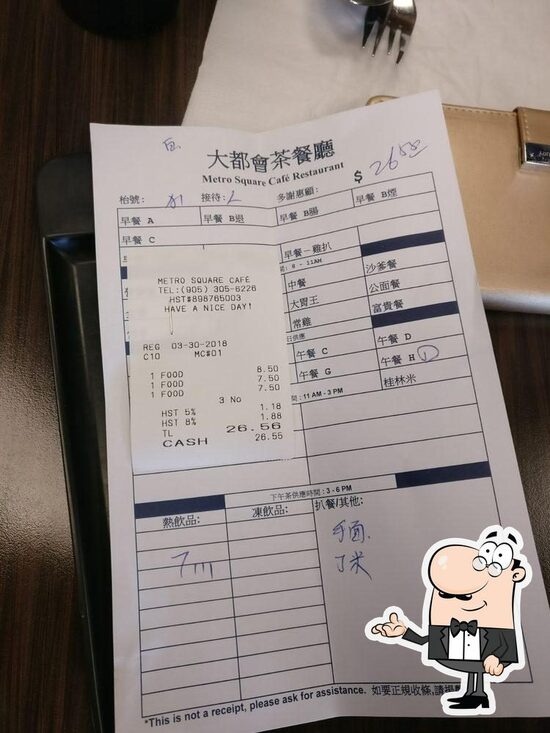 大都會茶餐廳
Metro Square Café Restaurant
$ 26
枱號: 接待: 多謝惠顧:
早餐 A 早餐 B退 早餐 B腸 早餐 B煙
早餐 C
早餐－雞扒
8 - 11AM
中餐 沙爹餐
大胃王 公面餐
常雞 富貴餐
午餐 C 午餐 D
午餐 G 午餐 H 1
桂林米
: 11 AM - 3 PM
METRO SQUARE CAFE
TEL:(905) 305-6228
HST#898765003
HAVE A NICE DAY!
REG 03-30-2018
C10 MC#01
1 FOOD 8.50
1 FOOD 7.50
1 FOOD 7.50
3 No
HST 5% 1.18
HST 8% 1.88
TL 26.56
CASH 26.55
下午茶供應時間 : 3 - 6 PM
熱飲品: 凍飲品: 扒餐/其他:
*This is not a receipt, please ask for assistance. 如要正規收條,請